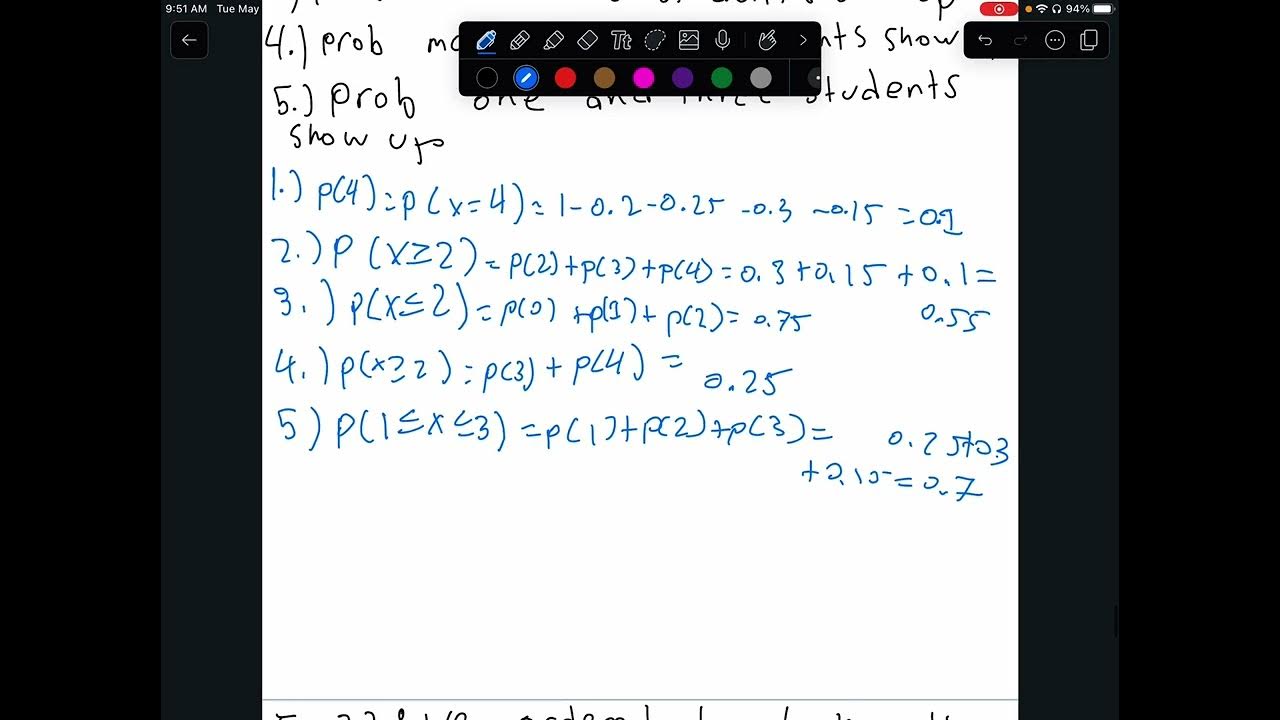 9:51 AM Tue May
94%
4.) prob
nts show
Tt
5.) prob one and three students
show up
1.) p(4)=p(x=4)=1-0.2-0.25-0.3-0.15=0.1
2.) P(X≥2)=p(2)+p(3)+p(4)=0.3+0.15+0.1=
0.55
3.) p(x≤2)=p(0)+p(1)+p(2)=0.75
4.) p(x≥2)=p(3)+p(4)=
0.25
5) p(1≤x≤3)=p(1)+p(2)+p(3)=0.25+0.3
+0.15=0.7